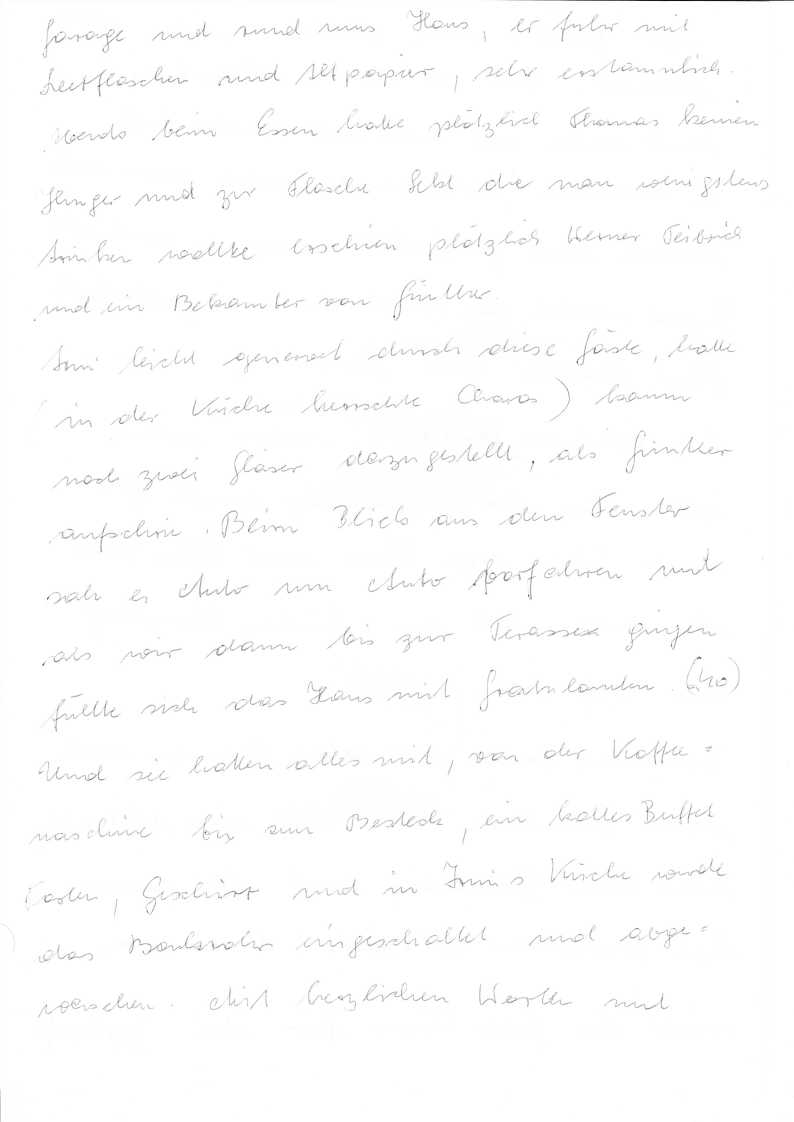 Garage und rund ums Haus, er fuhr mit
Leerflaschen und Altpapier, sehr erstaunlich.
Abends beim Essen hatte plötzlich Thomas keinen
Hunger und zur Flasche Sekt die man wenigstens
trinken wollte erschien plötzlich Werner
und ein Bekannter von Günther.
Irmi leicht genervt durch diese Gäste, hatte
(in der Küche herrschte Chaos) kaum
noch zwei Gläser dazugestellt, als Günther
aufschrie. Beim Blick aus dem Fenster
sah er Auto um Auto vorfahren und
als wir dann bis zur Terasse gingen
füllte sich das Haus mit Gratulanten. (40)
Und sie hatten alles mit, von der Kaffee=
maschine bis zum Besteck, ein kaltes Buffet
Torten, Geschirr und in Irmis Küche wurde
das Backrohr eingeschaltet und abge=
waschen. Mit herzlichen Worten und